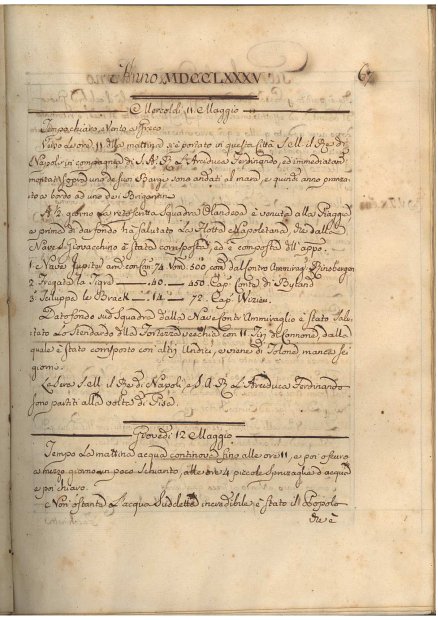 Anno MDCCLXXXV 67
Mercoldì 11 Maggio
Tempo chiaro, e Vento a Greco
Verso le ore 11 della mattina se è portato in questa Città S. M. il Re di
Napoli in compagnia di S. A. R. L'Arciduca Ferdinando, ed immediatam.
montati sopra uno de suoi Barge sono andati al mare, e quindi anno pranza-
to a bordo ad uno dei Brigantini
A ½ giorno La retroscritta Squadra Olandese è venuta alla Spiaggia
e prima di dar fondo ha salutato La Flotta Napoletana, e dalla
Nave S. Giovacchino è stata corrisposta, ed è composta
1 Nave Jupiter 74 500 com. dal Contro Ammirag. Kinsbergen
2 Fregata la Tigre 40 450 Cap. Conte di Byland
3 Scialuppa le Brack 14 72 Cap.
Dato fondo Squadra dalla Nave Ammiraglio è stato Salu-
tato Lo Stendardo della Fortezza vecchia con 11 Tiri di Cannone, dalla
quale è stato corrisposto con altri Undici, e viene di Tolone manca sei
giorni.
La Sera S. M. il Re di Napoli e S. A. R. L'Arciduca Ferdinando
sono partiti alla volta di Pisa.
Giovedì 12 Maggio
Tempo La mattina acqua continova fino alle ore 11, e poi oscuro
a mezzo giorno un poco Schianto, alle ore 4 piccole Spruzaglie d'acqua
e poi chiaro.
Non ostante L'acqua Suddetta incredibile è stato il Popolo
che è